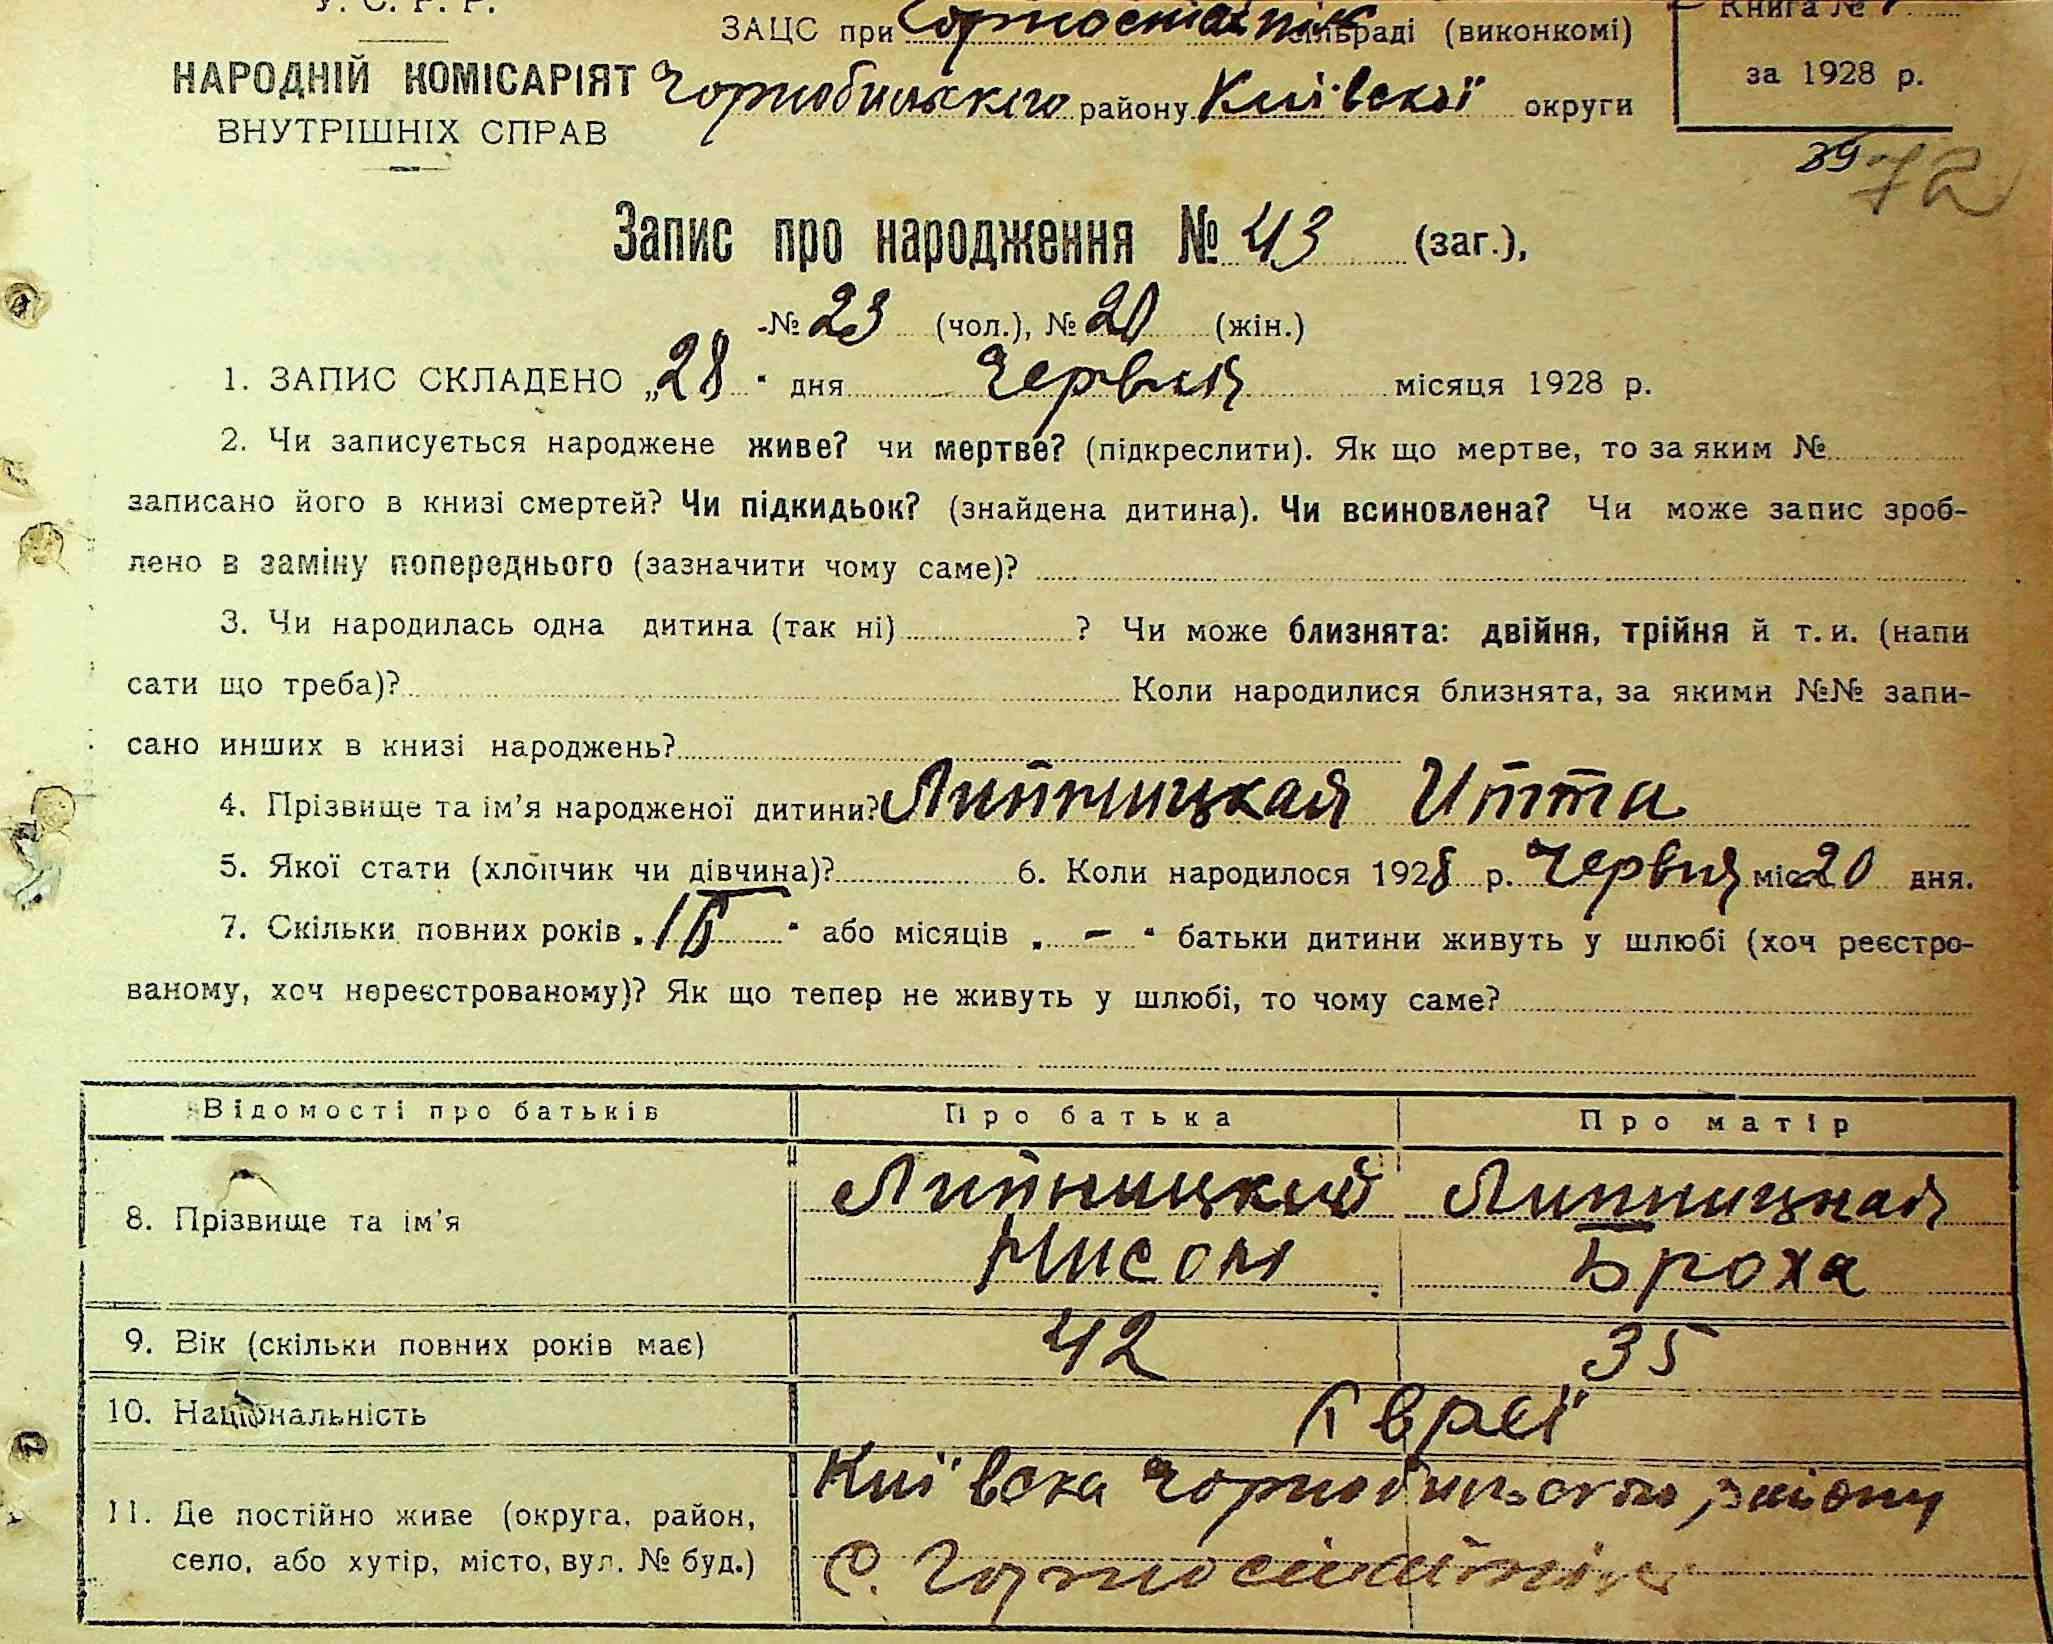 У. С. Р. Р.
ЗАЦС при Горностайпіл сільраді (виконкомі)
Книга №
НАРОДНІЙ КОМІСАРІЯТ
ВНУТРІШНІХ СПРАВ
Чорнобильского району Київскої округи
за 1928 р.
39 72
Запис про народження № 43 (заг.),
№ 23 (чол.), № 20 (жін.)
1. ЗАПИС СКЛАДЕНО „28" дня Червня місяця 1928 р.
2. Чи записується народжене живе? чи мертве? (підкреслити). Як що мертве, то за яким №
записано його в книзі смертей? Чи підкидьок? (знайдена дитина). Чи всиновлена? Чи може запис зроб-
лено в заміну попереднього (зазначити чому саме)?
3. Чи народилась одна дитина (так ні) ? Чи може близнята: двійня, трійня й т. и. (напи
сати що треба)? Коли народилися близнята, за якими №№ запи-
сано инших в книзі народжень?
4. Прізвище та ім'я народженої дитини? Липницкая Итта
5. Якої стати (хлопчик чи дівчина)? 6. Коли народилося 1928 р. Червня міс 20 дня.
7. Скільки повних років „ " або місяців „ - " батьки дитини живуть у шлюбі (хоч реєстро-
ваному, хоч нереєстрованому)? Як що тепер не живуть у шлюбі, то чому саме?
Відомості про батьків Про батька Про матір
8. Прізвище та ім'я Липницкий Липницкая
Нисон Броха
9. Вік (скільки повних років має) 42 35
10. Національність Євреї
11. Де постійно живе (округа, район,
село, або хутір, місто, вул. № буд.)
Київска Чорнобильского району
С. Горностайпіль